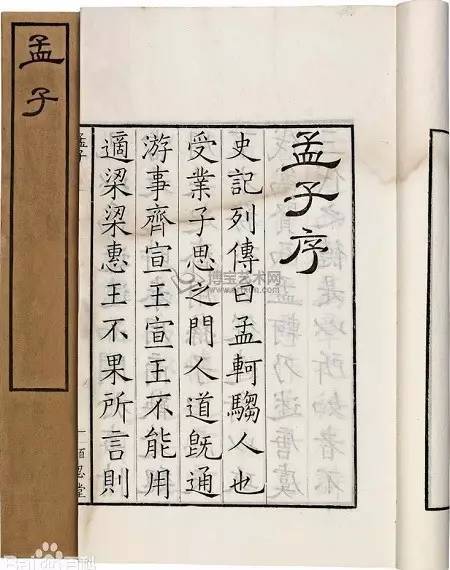 孟子
孟子序
史記列傳曰孟軻騶人也
受業子思之門人道旣通
游事齊宣王宣王不能用
適梁梁惠王不果所言則
孟子
博宝艺术网
Bai 百科